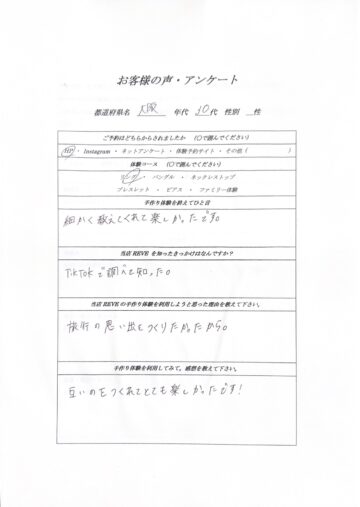 お客様の声・アンケート
都道府県名 大阪 年代 10代 性別 性
ご予約はどちらからされましたか (○で囲んでください)
HP ・ Instagram ・ ネットアンケート ・ 体験予約サイト ・ その他 ( )
体験コース (○で囲んでください)
リング ・ バングル ・ ネックレストップ
ブレスレット ・ ピアス ・ ファミリー体験
手作り体験を終えてひと言
細かく教えてくれて楽しかったです。
当店 REVE を知ったきっかけはなんですか?
TikTokで調べて知った。
当店 REVE の手作り体験を利用しようと思った理由を教えて下さい。
旅行の思い出をつくりたかったから。
手作り体験を利用してみて。感想を教えて下さい。
互いのをつくれてとても楽しかったです!